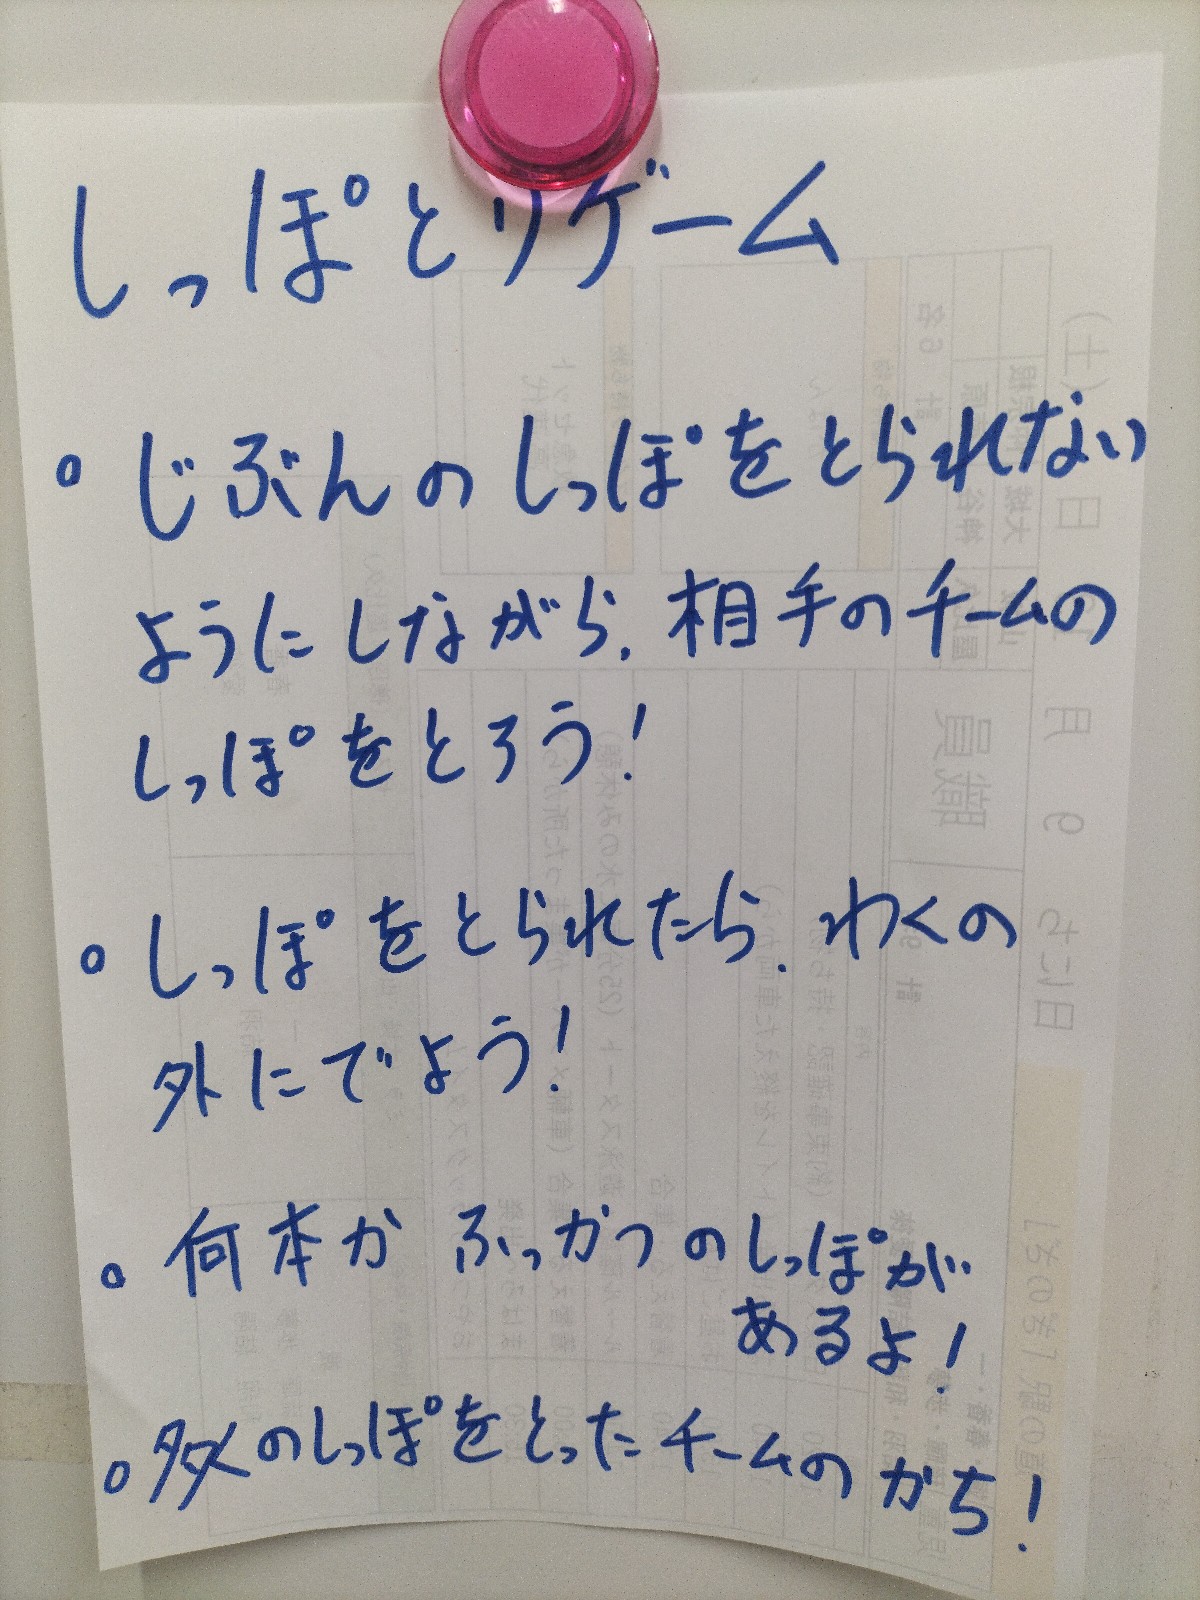 しっぽとりゲーム
。じぶんのしっぽをとられない
ようにしながら、相手のチームの
しっぽをとろう!
。しっぽをとられたら、わくの
外にでよう!
。何本かふっかつのしっぽが
あるよ!
。多くのしっぽをとったチームのかち!